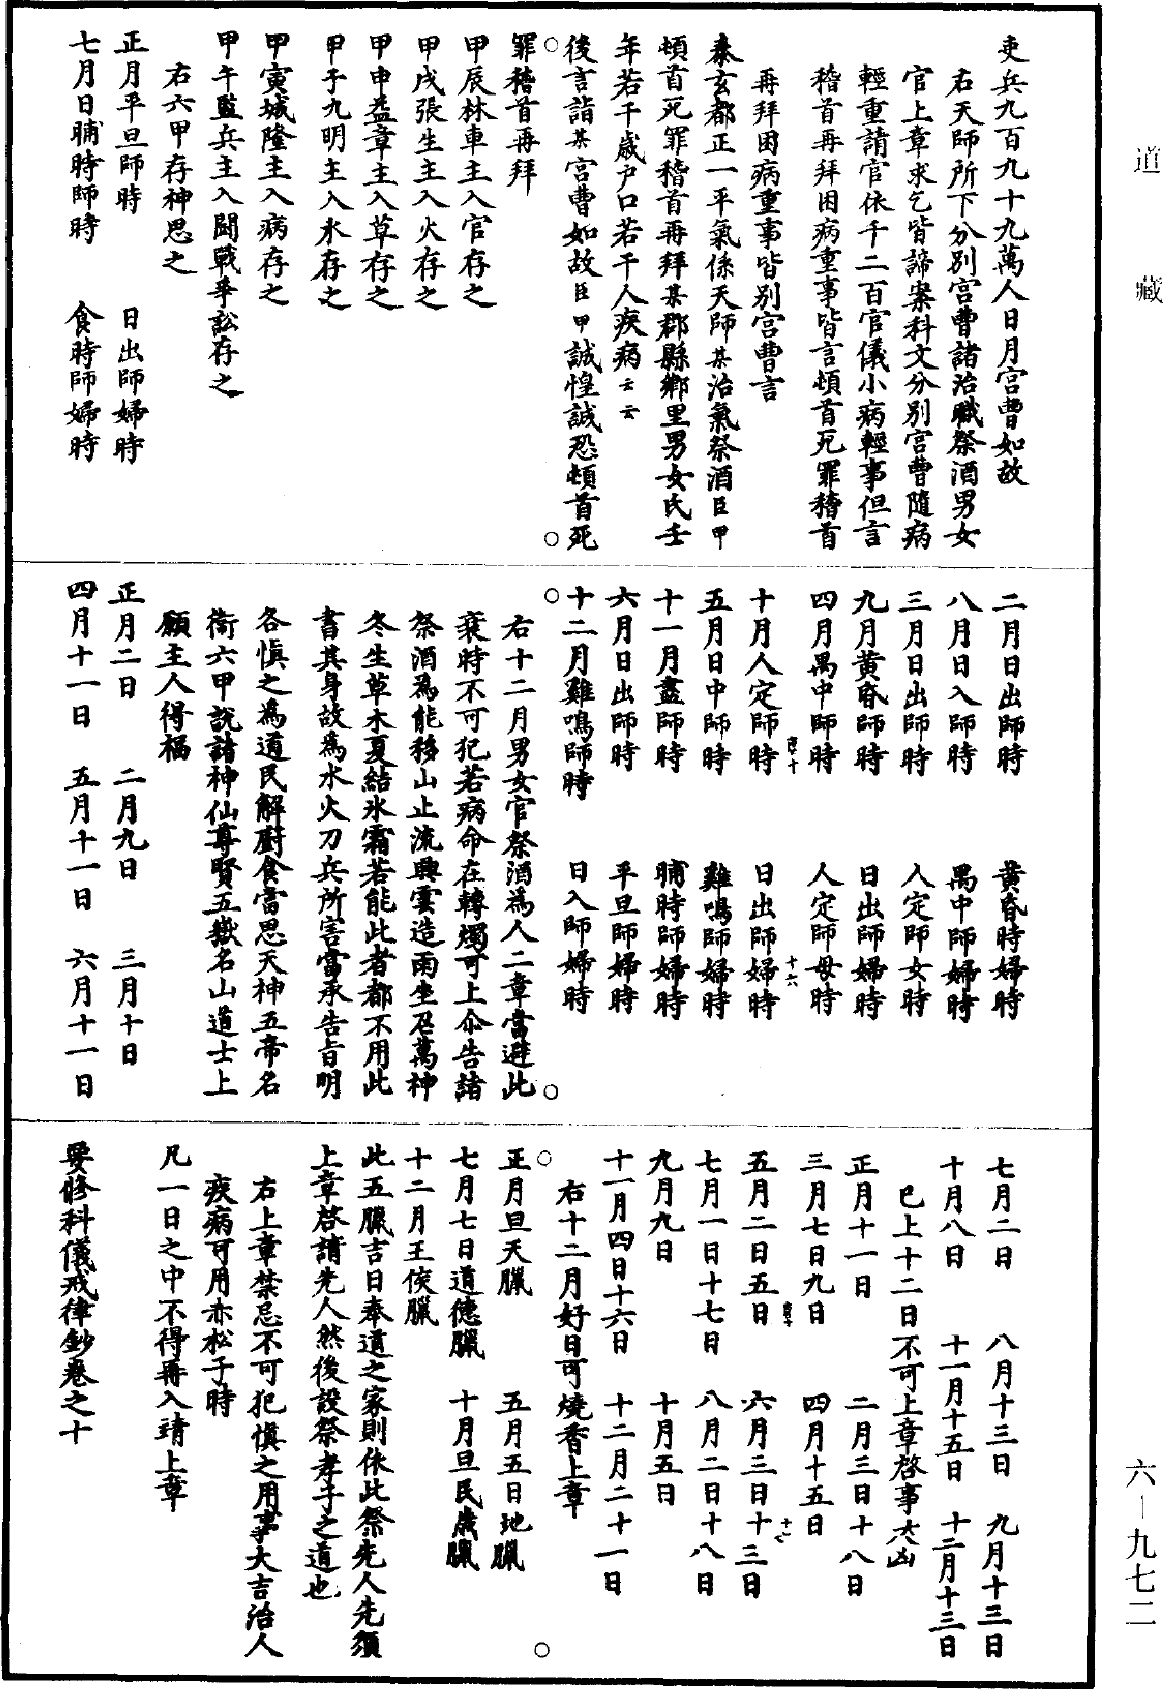 道藏
吏兵九百九十九萬人日月宫曹如故
右天師所下分别宫曹諸治職祭酒男女
官上章求乞皆諦案科文分别宫曹隨病
輕重請官依千二百官儀小病輕事但言
稽首再拜困病重事皆言頓首死罪稽首
再拜困病重事皆别宫曹言
泰玄都正一平氣係天師某治氣祭酒臣甲
頓首死罪稽首再拜某郡縣鄉里男女氏壬
年若干歲户口若干人疾病云云
後言詣某宫曹如故臣甲誠惶誠恐頓首死
罪稽首再拜
甲辰林車主入官存之
甲戌張生主入火存之
甲申益章主入草存之
甲子九明主入水存之
甲寅城隆主入病存之
甲午監兵主入鬪戰爭訟存之
右六甲存神思之
正月平旦師時 日出師婦時
七月日晡時師時 食時師婦時
二月日出師時 黄昏時婦時
八月日入師時 禺中師婦時
三月日出師時 人定師女時
九月黄昏師時 日出師婦時
四月禺中師時 人定師母時
十月人定師時 日出師婦時
五月日中師時 雞鳴師婦時
十一月盡師時 晡時師婦時
六月日出師時 平旦師婦時
十二月雞鳴師時 日入師婦時
右十二月男女官祭酒為人二章當避此
衰時不可犯若病命在轉燭可上伞告諸
祭酒為能移山止流興雲造雨坐召萬神
冬生草木夏結氷霜若能此者都不用此
書其身故為水火刀兵所害當承告旨明
各慎之為道民解厨食當思天神五帝名
銜六甲說諸神仙尊賢五嶽名山道士上
願主人得福
正月二日 二月九日 三月十日
四月十一日 五月十一日 六月十一日
七月二日 八月十三日 九月十三日
十月八日 十一月十五日 十二月十三日
已上十二日不可上章啓事大凶
正月十一日 二月三日十八日
三月七日九日 四月十五日
五月二日五日 六月三日十三日
七月一日十七日 八月二日十八日
九月九日 十月五日
十一月四日十六日 十二月二十一日
右十二月好日可燒香上章
正月旦天臘 五月五日地臘
七月七日道德臘 十月旦民歲臘
十二月王侯臘
此五臘吉日奉道之家則依此祭先人先須
上章啓請先人然後設祭孝子之道也
右上章禁忌不可犯慎之用事大吉治人
疾病可用赤松子時
凡一日之中不得再入靖上章
要修科儀戒律鈔卷之十
六—九七二